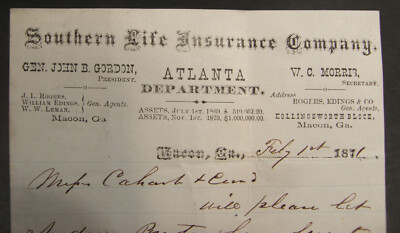 Southern Life Insurance Company.
GEN. JOHN B. GORDON,
PRESIDENT.
J. L. ROGERS,
WILLIAM EDINGS,
W. W. LEMAN.
Gen. Agents.
MACON, GA
ATLANTA
DEPARTMENT.
ASSETS, JULY 1ST, 1869
ASSETS, NOV. 1ST, 1870, $1,000,000.00.
W. C. MORRIS,
SECRETARY.
Address
ROGERS, EDINGS & CO
Gen. Agents.
HOLLINGSWORTH BLOCK
MACON, GA.
Macon, Ga., Feby 1st 1871.
Messrs
will please let